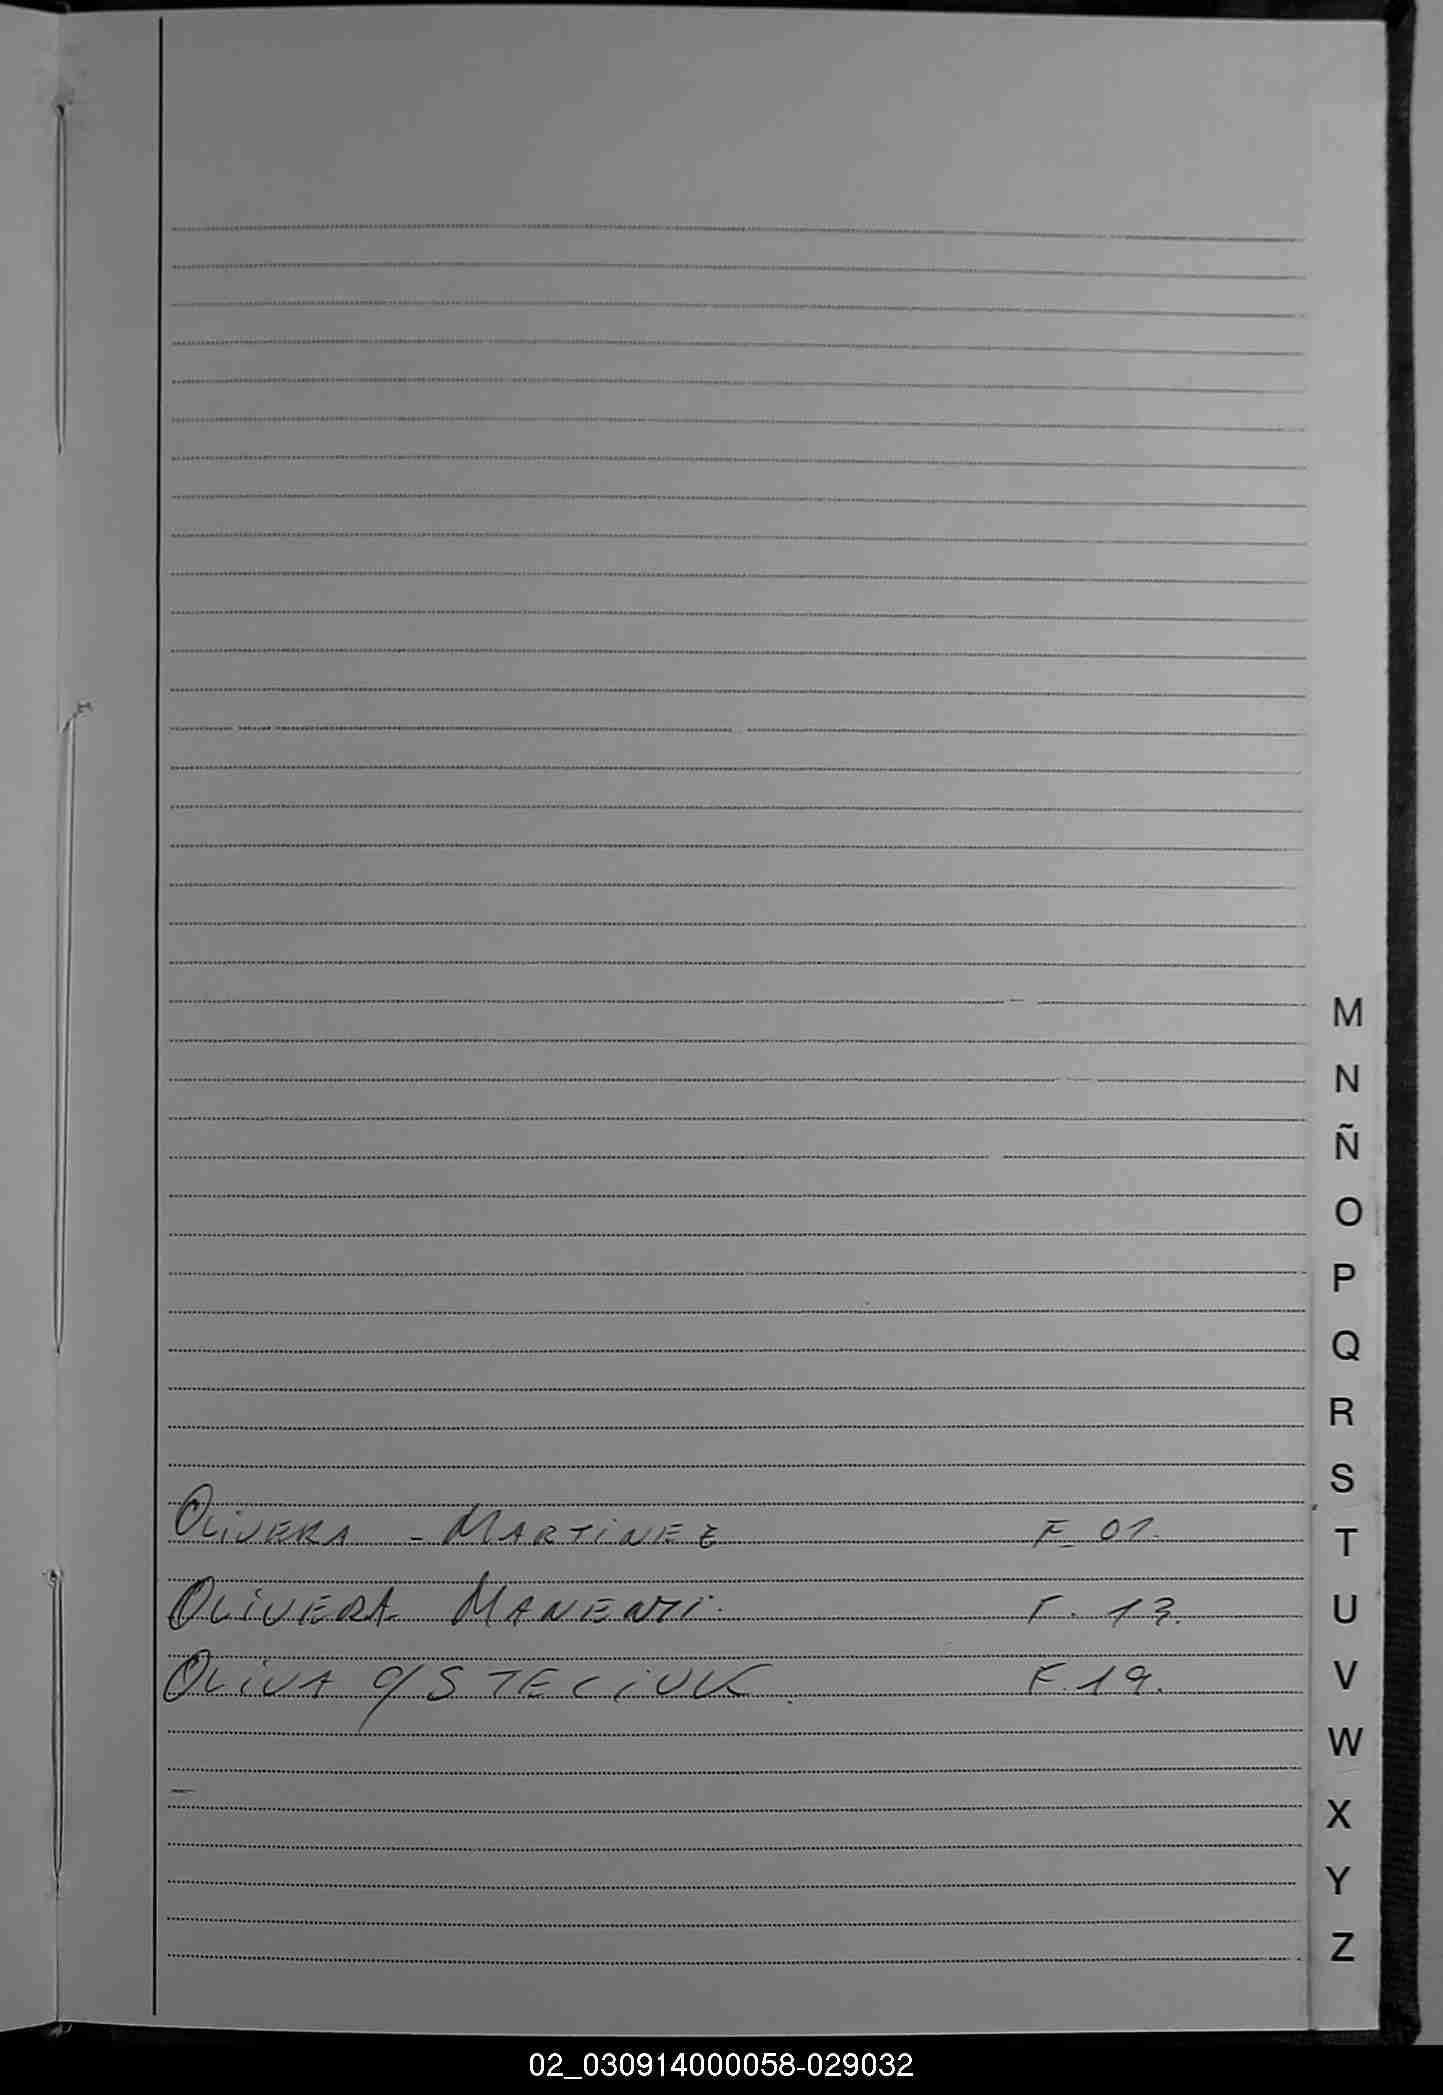 M
N
Ñ
O
P
Q
R
S
OLIVERA - MARTINEZ F. 01.
T
OLIVERA MANENTI. F. 13.
U
OLIVA c/ STECIUK. F. 19.
V
W
X
Y
Z
02_030914000058-029032